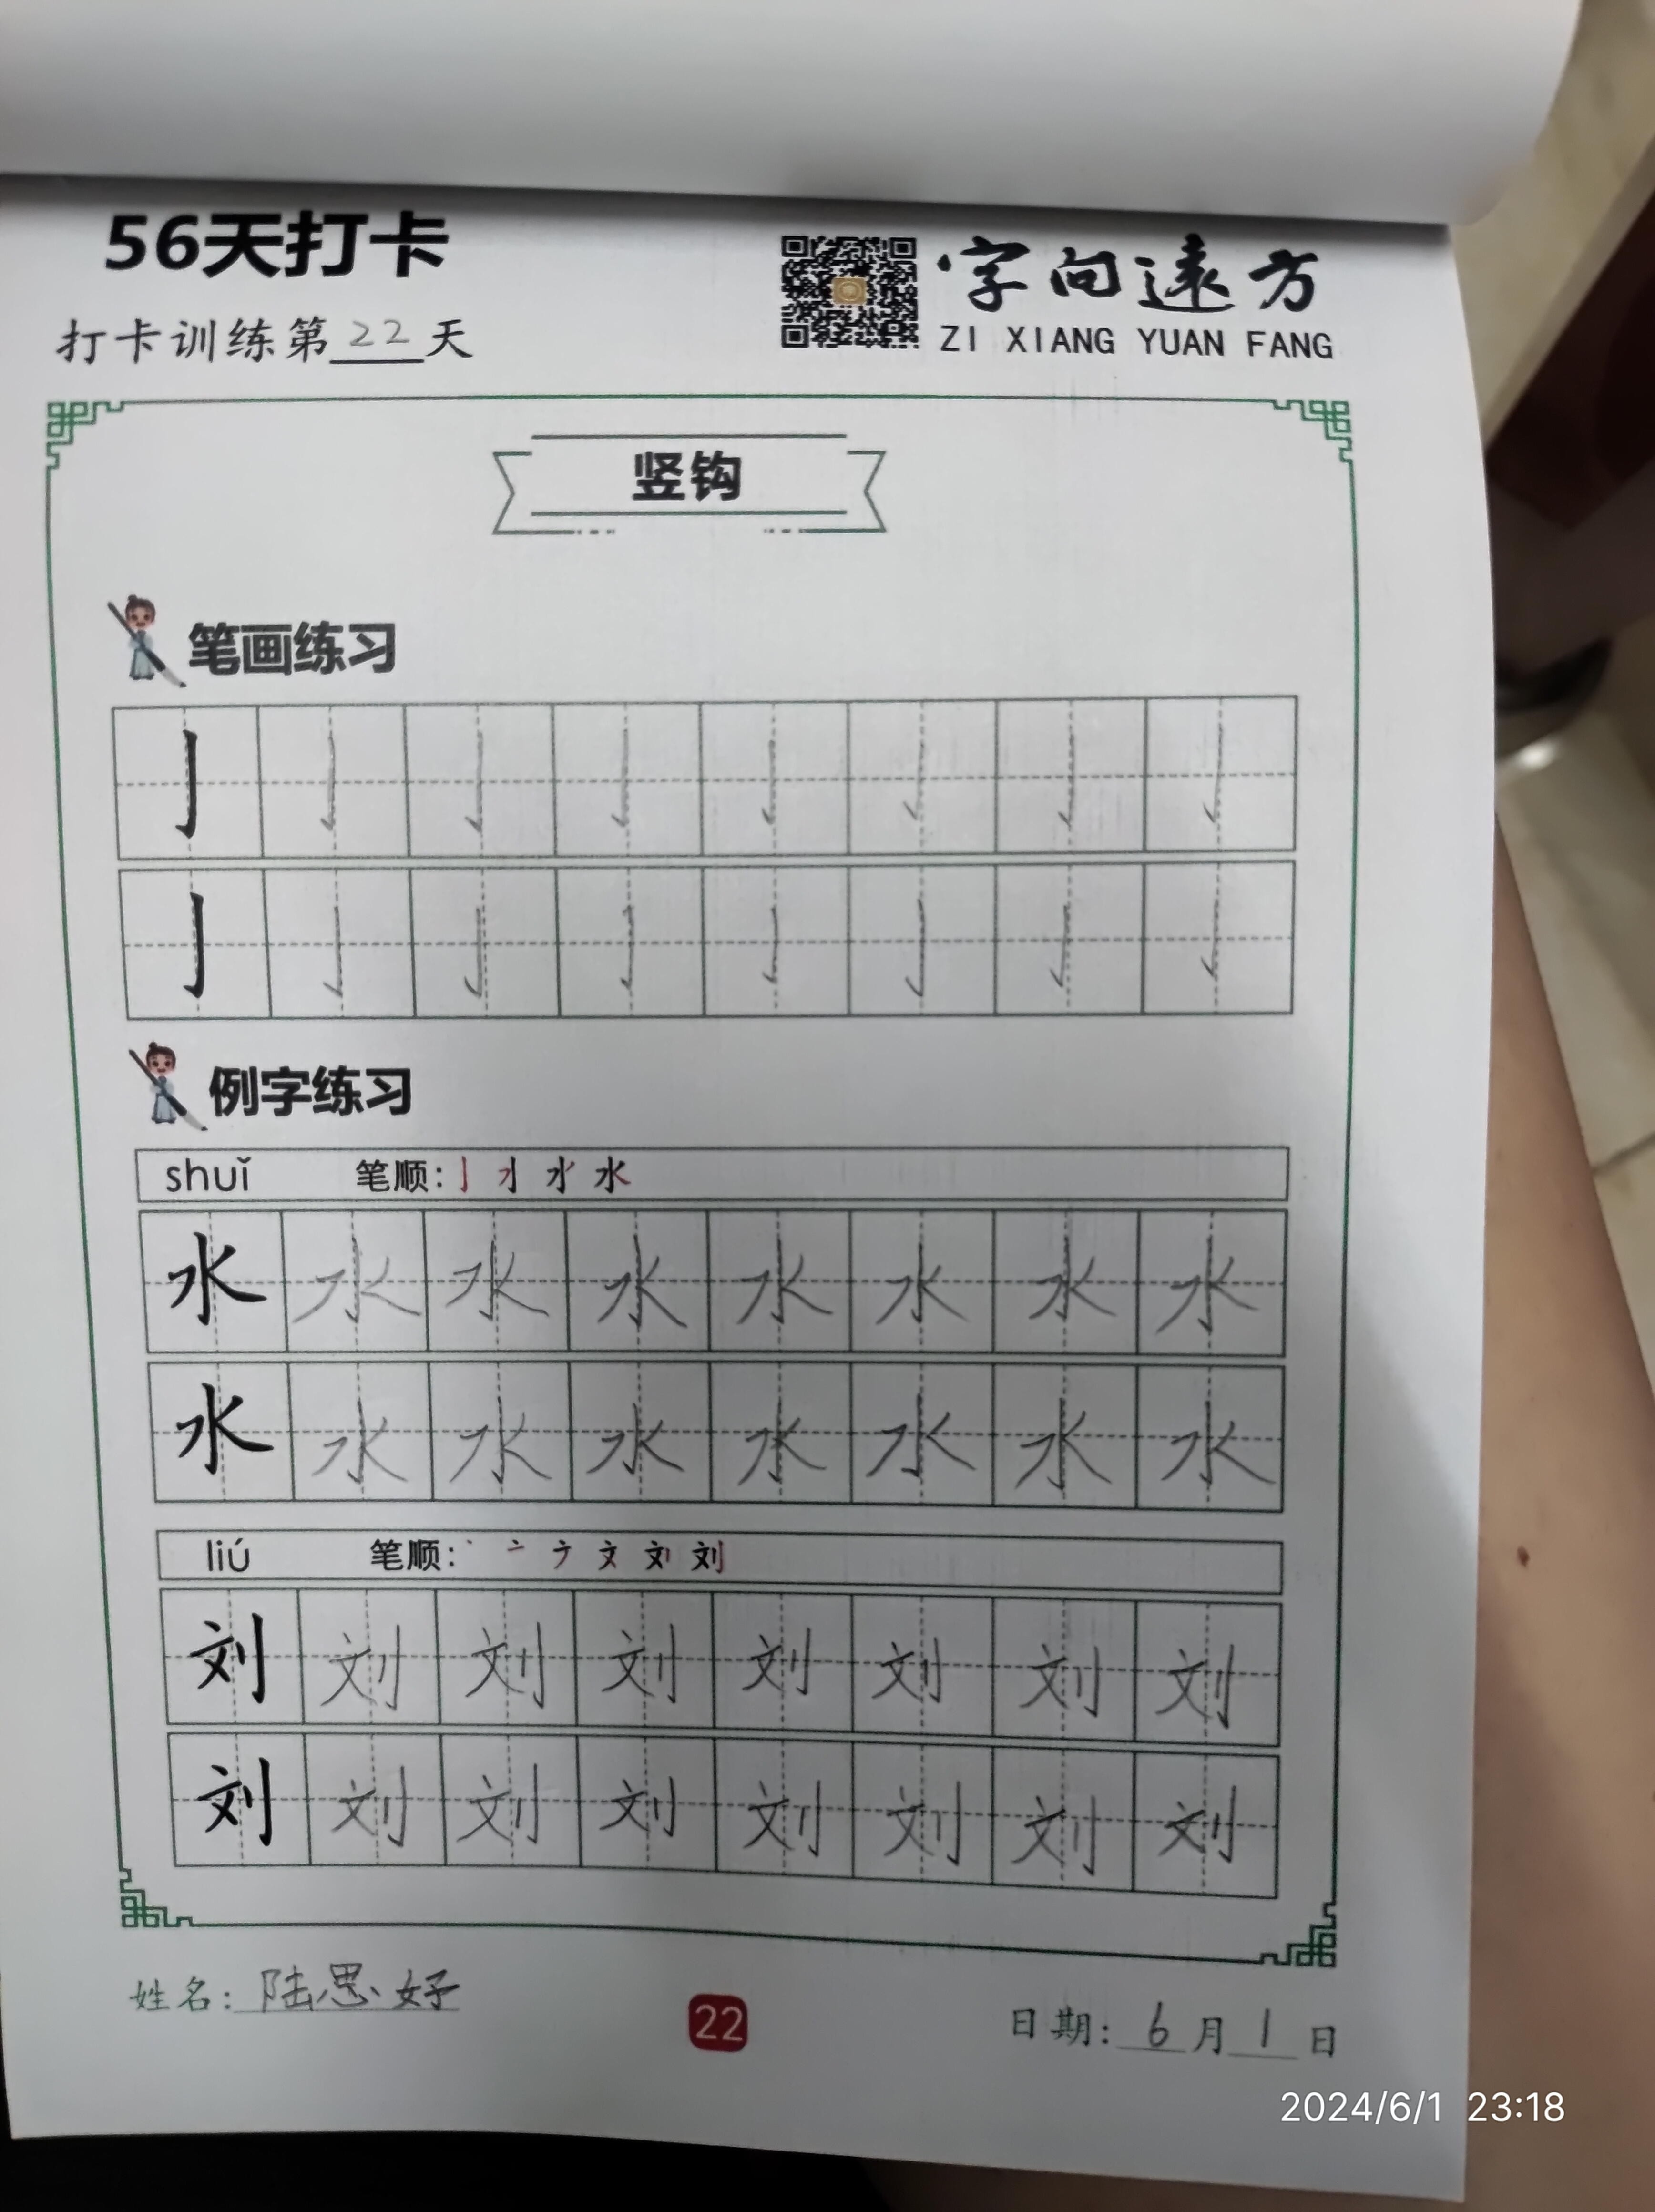 56天打卡
字向遠方
ZI XIANG YUAN FANG
打卡训练第22天
竖钩
笔画练习
亅
亅
例字练习
shuǐ 笔顺: 水
水 水 水 水 水 水 水 水
水 水 水 水 水 水 水 水
liú 笔顺: 丶 亠 ナ 文 刘 刘
刘 刘 刘 刘 刘 刘 刘 刘
刘 刘 刘 刘 刘 刘 刘 刘
姓名: 陆思好
22
日期: 6月1日
2024/6/1 23:18